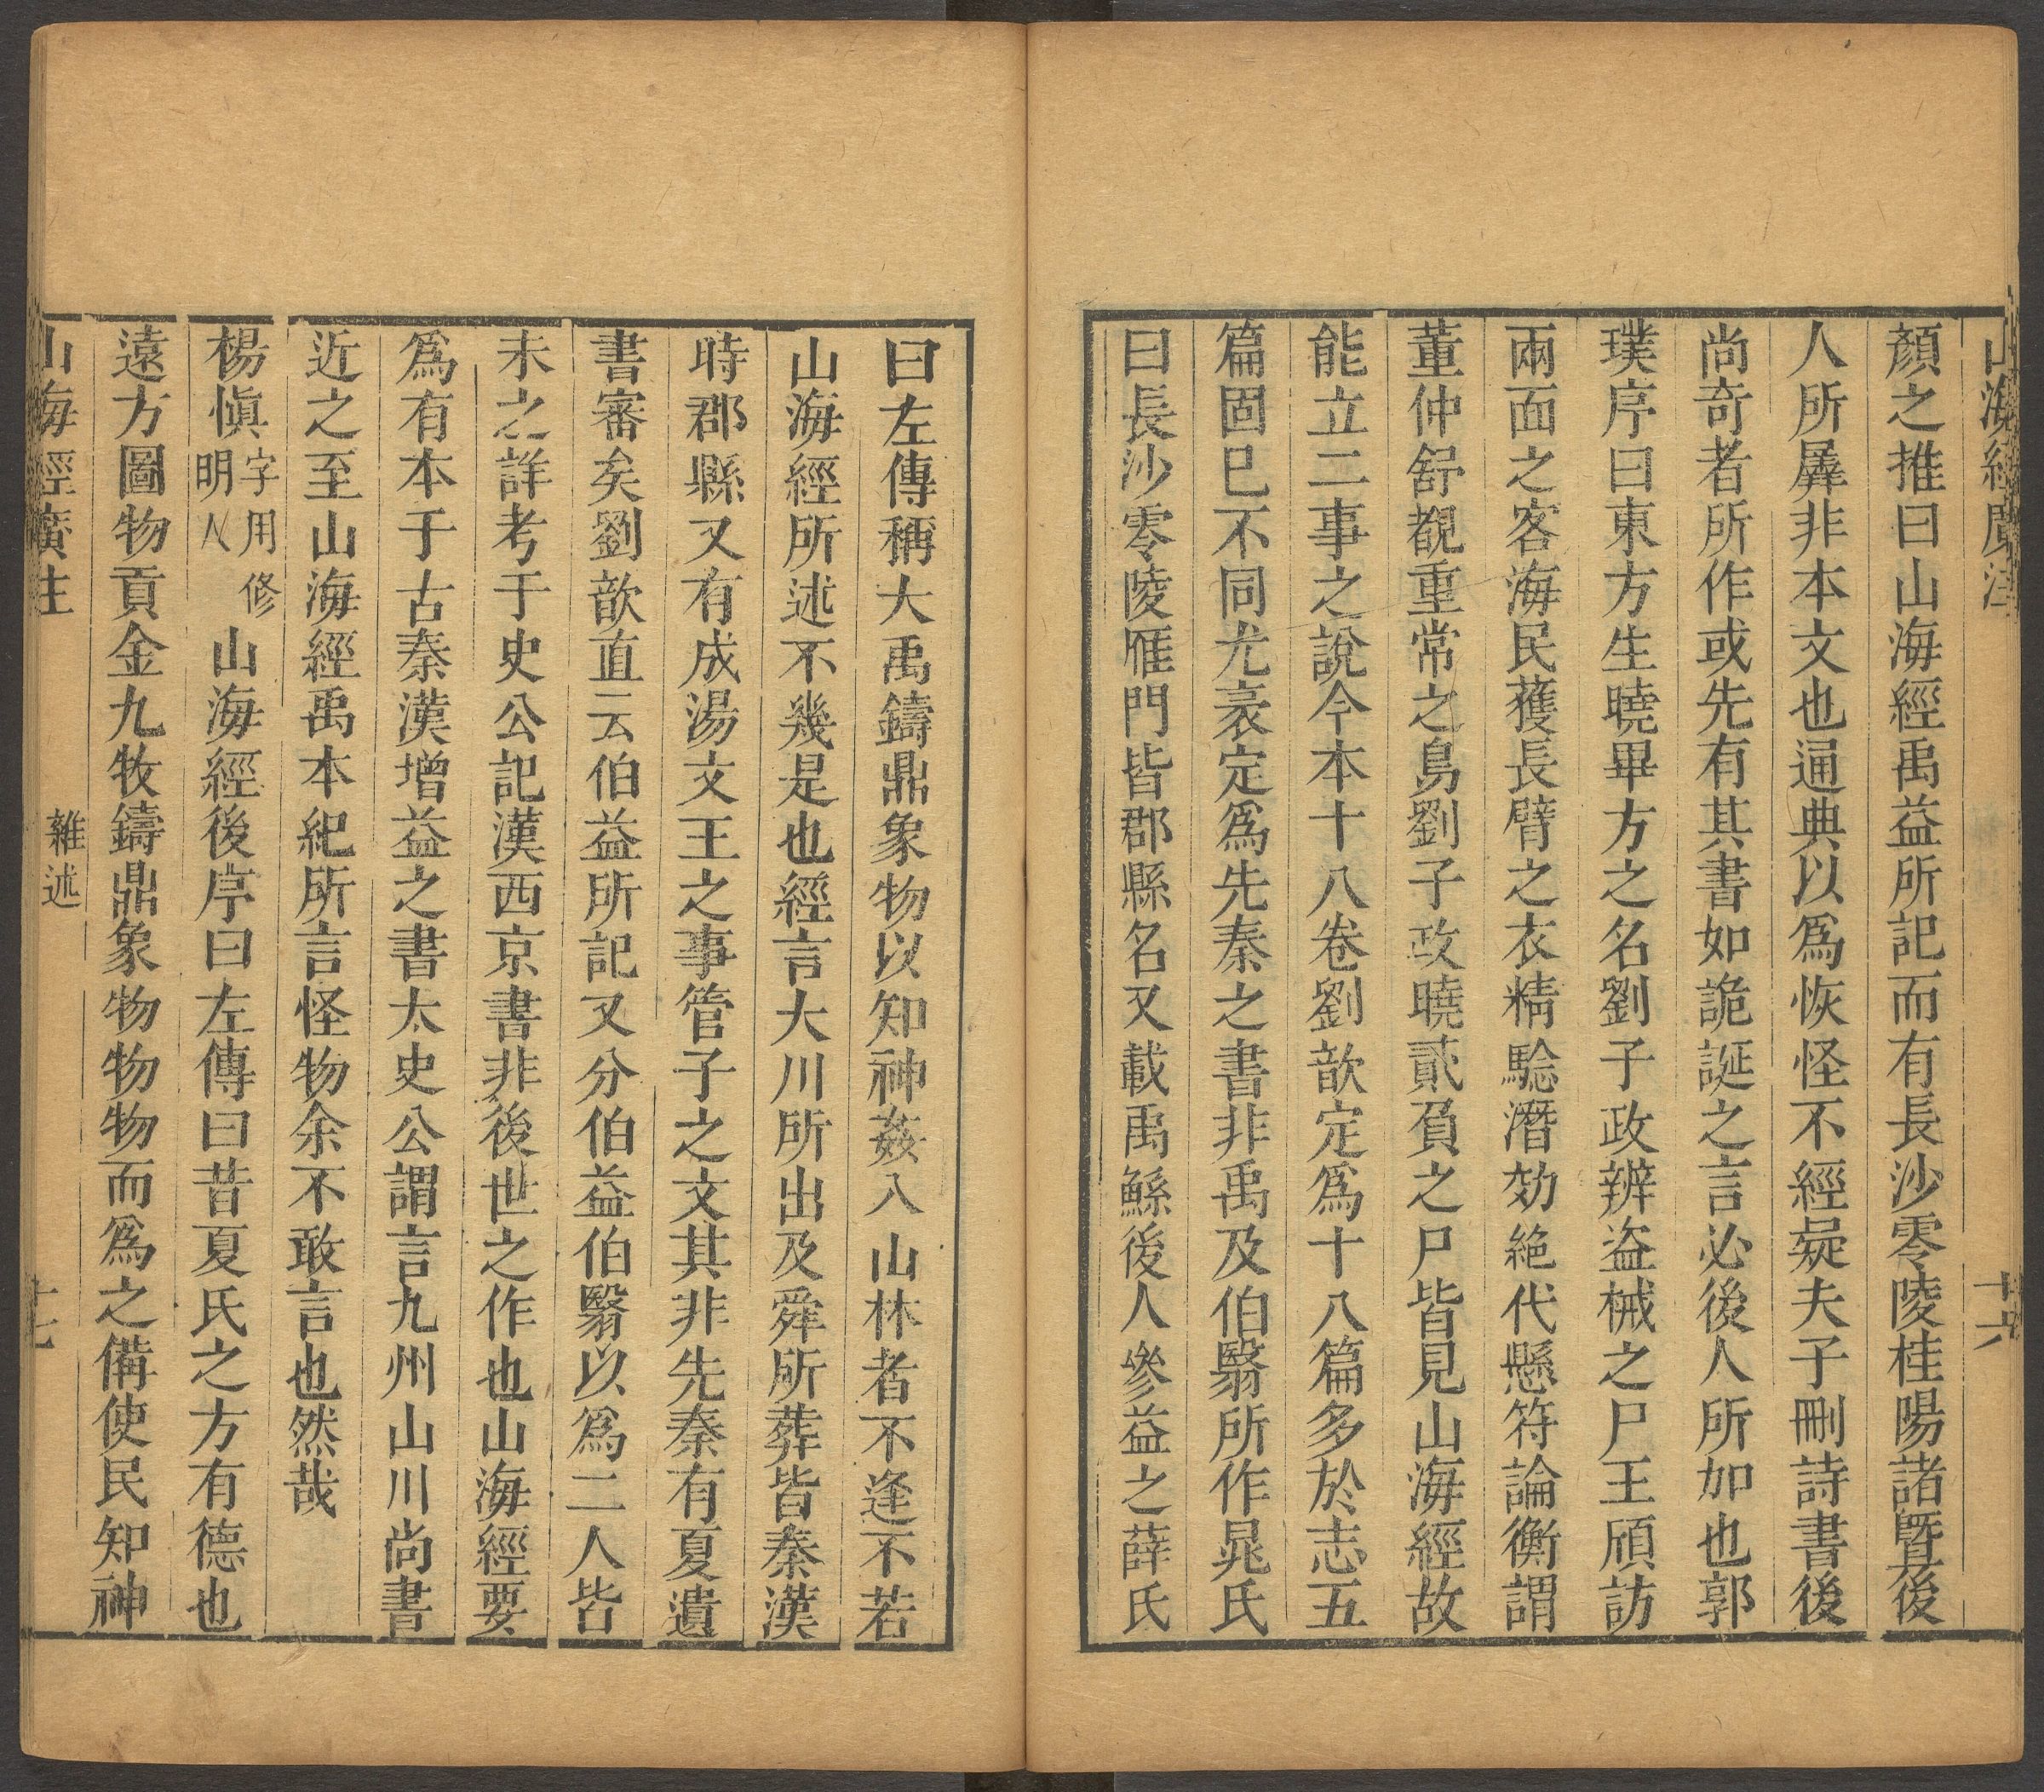 山海經廣注
十六
顏之推曰山海經禹益所記而有長沙零陵桂陽諸曁後
人所羼非本文也通典以爲恢怪不經疑夫子刪詩書後
尚奇者所作或先有其書如詭誕之言必後人所加也郭
璞序曰東方生曉畢方之名劉子政辨盜械之尸王頎訪
兩面之客海民獲長臂之衣精驗潛効絶代懸符論衡謂
董仲舒覩重常之鳥劉子政曉貳負之尸皆見山海經故
能立二事之說今本十八卷劉歆定爲十八篇多於志五
篇固已不同尤袤定爲先秦之書非禹及伯翳所作晁氏
曰長沙零陵雁門皆郡縣名又載禹鯀後人參益之薛氏
曰左傳稱大禹鑄鼎象物以知神姦入山林者不逢不若
山海經所述不幾是也經言大川所出及舜所葬皆秦漢
時郡縣又有成湯文王之事管子之文其非先秦有夏遺
書審矣劉歆直云伯益所記又分伯益伯翳以爲二人皆
未之詳考于史公記漢西京書非後世之作也山海經要
爲有本于古秦漢增益之書太史公謂言九州山川尚書
近之至山海經禹本紀所言怪物余不敢言也然哉
楊愼字用修明人山海經後序曰左傳曰昔夏氏之方有德也
遠方圖物貢金九牧鑄鼎象物物物而爲之備使民知神
山海經廣注
雜述
十七